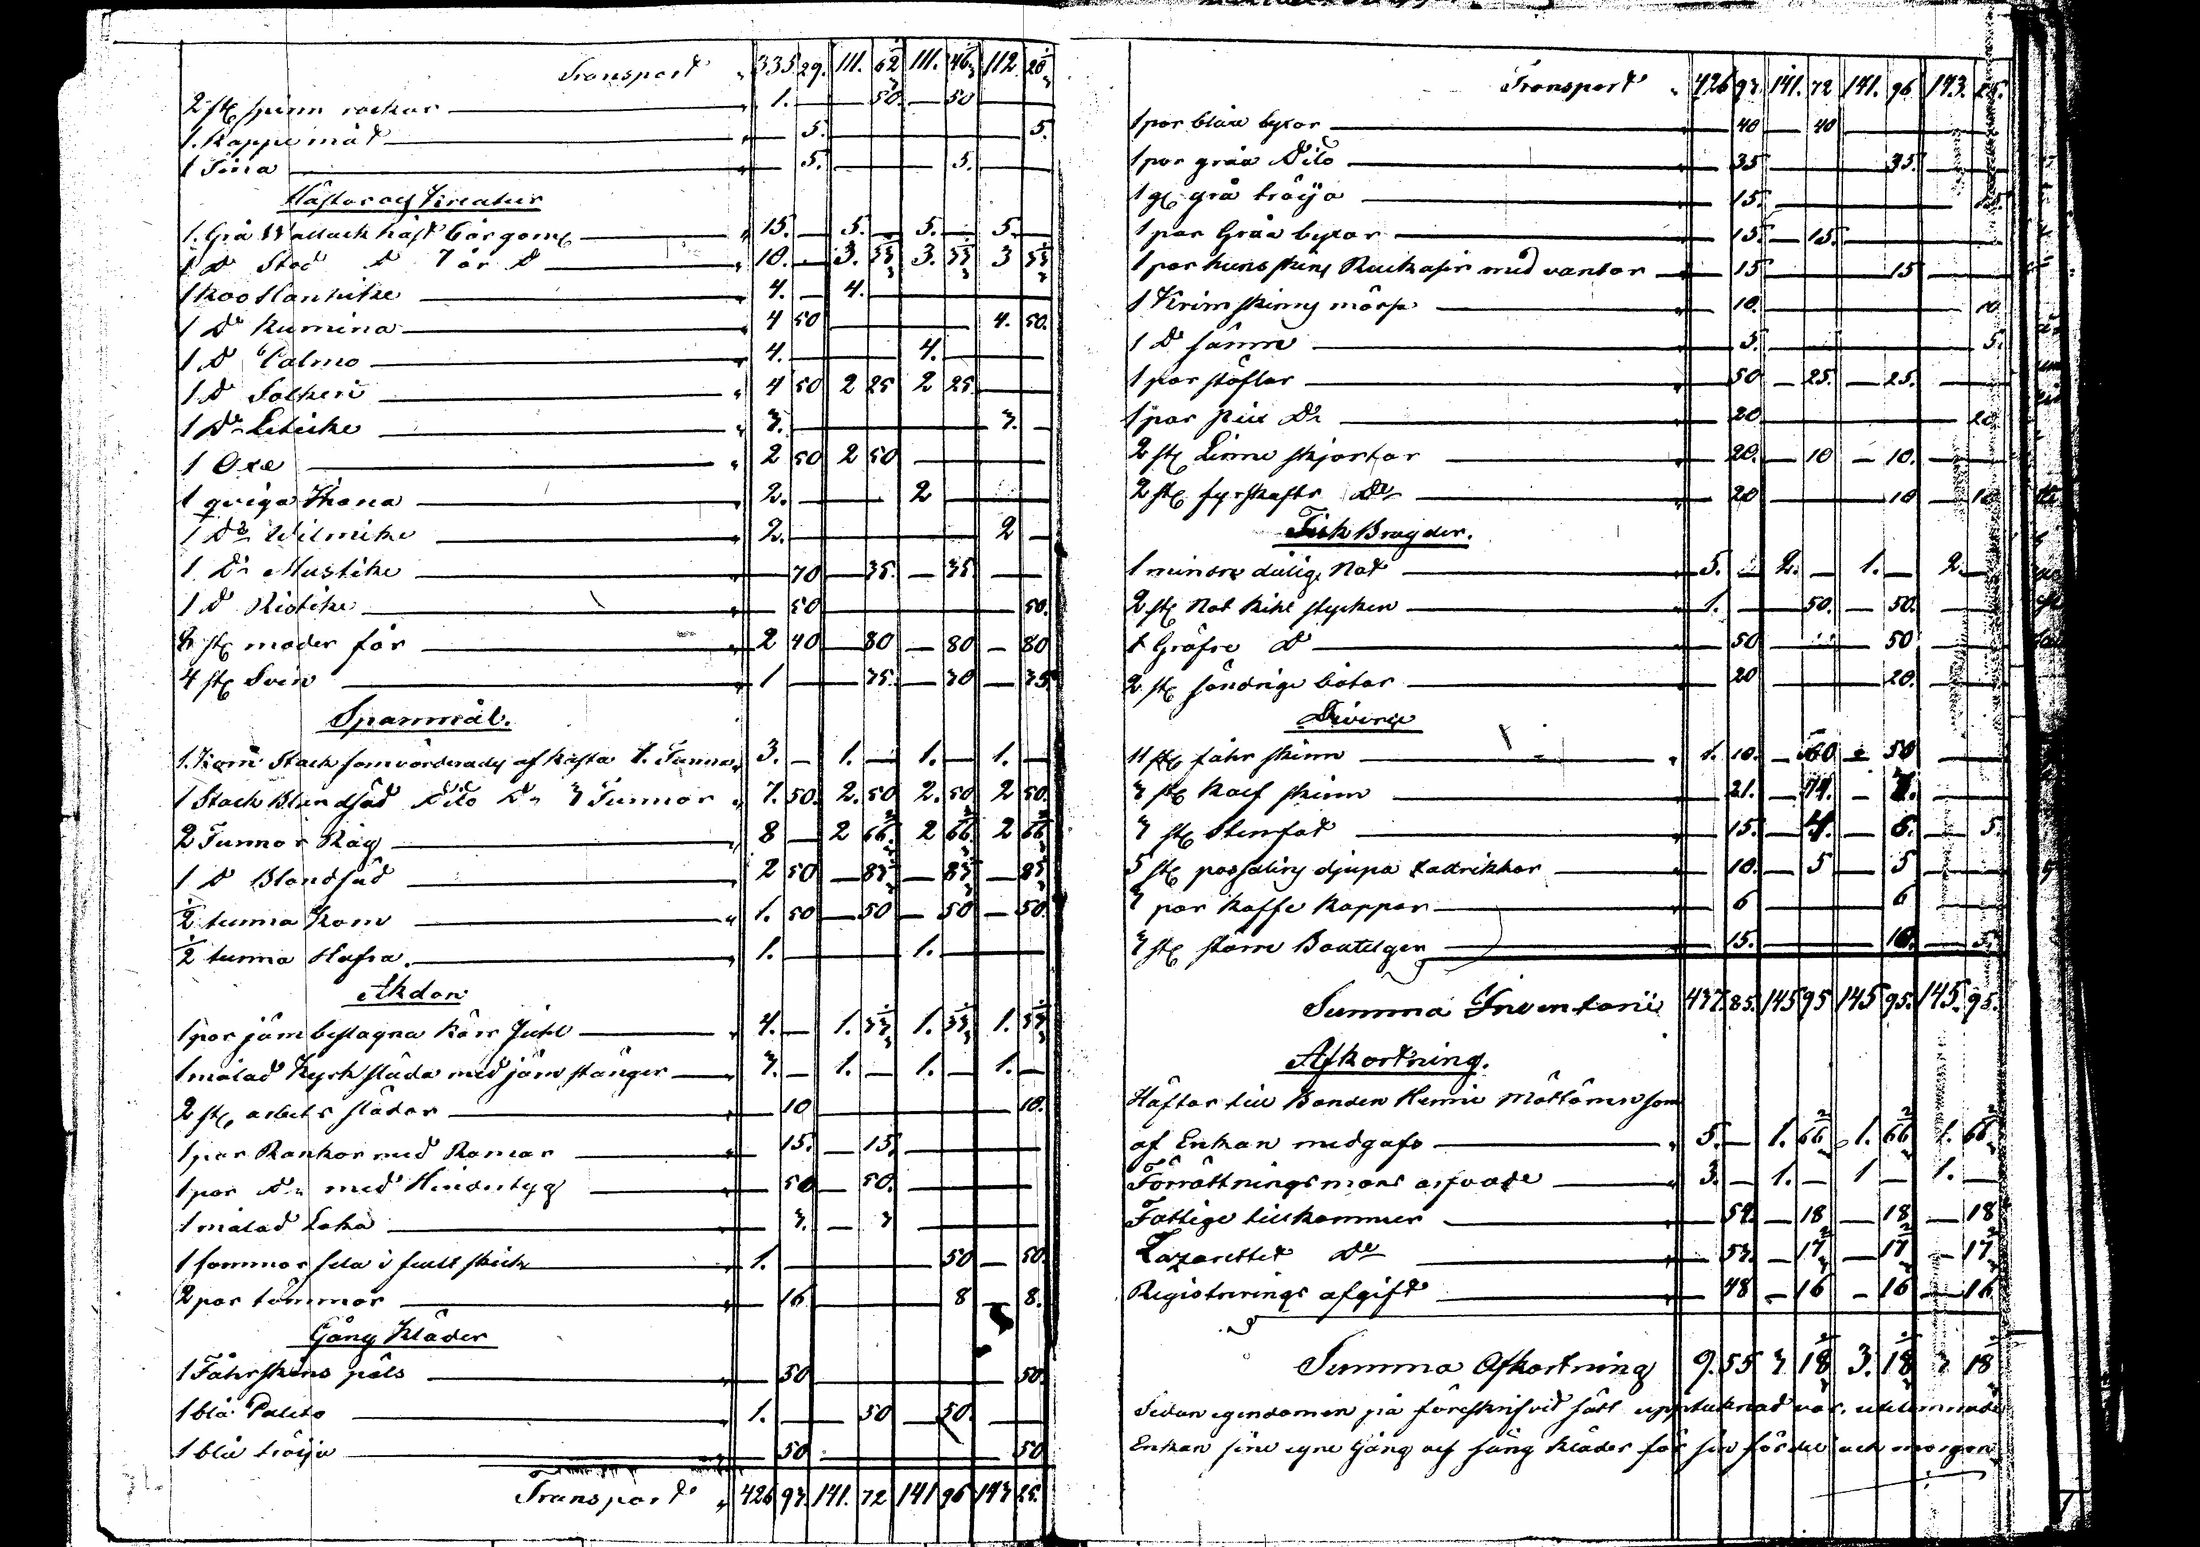 Transport 335 29. 111. 62 1/3 111. 46 1/3 112 20 1/3
2 st spinn rockar 1. — 50. — 50
1. Kappe måt 5. 5.
1 Tina 5. 5.
Hästar och Kreatur
1. Grå Wallack häst 6 år gaml 15. 5. 5. 5.
1 D Sto D 7 år D 10. 3. 33 1/3 3. 33 1/3 3 33 1/3
1 Koo 4. 4.
1 Do Kumina 4 50 4. 50.
1 D Calmo 4. 4.
1 D 4 50 2 25 2 25
1 Do 3. 3.
1 Oxe 2 50 2 50
1 qviga 2. 2
1 Do Wilmike 2. 2
1 Do Mustike 70 35. 35.
1 D 50 50.
8 st moder får 2 40 80 80 80
4 st Svin 1 35. 30 35
Spannmål.
1. Korn Stack som värderades af kasta 1. Tunna 3. 1. 1. 1.
1 Stack Blandsäd Dito Do 3 Tunnor 7. 50. 2. 50 2. 50 2 50.
2 Tunnor Råg 8 2 66 2/3 2 66 2/3 2 66 2/3
1 D Blandsäd 2 50 83 1/3 83 1/3 83 1/3
1/2 tunna Korn 1. 50 50 50 50
1/2 tunna Hafra. 1. 1.
Åkdon
1 par järn beslagna Kärr Juhl 4. 1. 33 1/3 1. 33 1/3 1. 33 1/3
1 målad Kyrk släda med järn stänger 3. 1. 1. 1.
2 st. arbets slädar 10 10.
1 par Rankor med Ramar 15. 15.
1 par Do med Hindertyg 50 50.
1 målad Loka 3. 3
1 sommar sela i fullt skick 1. 50 50.
2 par tömmar 16 8 8.
Gång Kläder
1 Fåhrskins päls 50 50.
1 blå Paleto 1. 50 50.
1 blå tröija 50 50
Transport 426 93. 141. 72 141 96 143 25.
Transport 426 93. 141. 72 141. 96 143. 25.
1 par blåa byxor 40 40
1 par gråa Dito 35 35.
1 gl grå tröija 15. 15.
1 par Gråa byxor 15. 15.
1 par med vantar 15 15
1 skinns mössa 10. 10
1 D sämre 5. 5.
1 par stöflar 50 25. 25.
1 par Do 20 20.
2 st Linne skjortor 20. 10 10.
2 st fyrskafts Do 20 10 10
Fisk Bragder.
1 mindre dålig Not 5. 2. 1. 2.
2 st Not stycken 1. 50. 50.
1 Gröfre D 50 50
2 st söndriga båtar 20 20.
Diverse
11 st fåhr skinn 1. 10. 60 50
3 st Kalf skinn 21. 14. 7.
3 st Stenfat 15. 4. 6. 5.
5 st djupa tallrikkar 10. 5 5
3 par Kaffe Koppar 6 6
3 st större Boutelger 15. 10. 5.
Summa Inventarii 437. 85. 145 95 145 95. 145. 95.
Afkortning.
Häftar till Bonden Henric som
af Enkan medgafs 5. 1. 66 2/3 1. 66 2/3 1. 66 2/3
Förrättningsmans arfvode 3. 1. 1 1.
Fattige tillkommer 54. 18 18 18
Lazarettet Do 53. 17 2/3 17 2/3 17 2/3
Registrerings afgift 48 16 16 16
Summa Afkortning 9. 55 3 18 1/3 3. 18 1/3 3 18 1/3
Sedan egendomen på föreskrifvid sätt upptecknad var, utelemnades
Enkan sine egne Gång och säng kläder för sin fördel och morgon